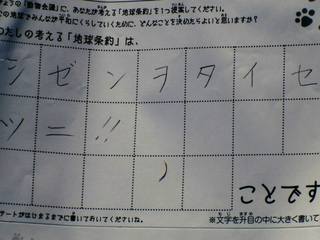 ょうの「動物会議」に、あなたが考える「地球条約」を1つ提案してください。
の地球でみんなが平和にくらしていくために、どんなことを決めたらよいと思いますか?
わたしの考える「地球条約」は、
シゼンヲタイセ
ツニ!!
ことです
アートがはじまるまでに書いておいてくださいね。
※文字を升目の中に大きく書いて